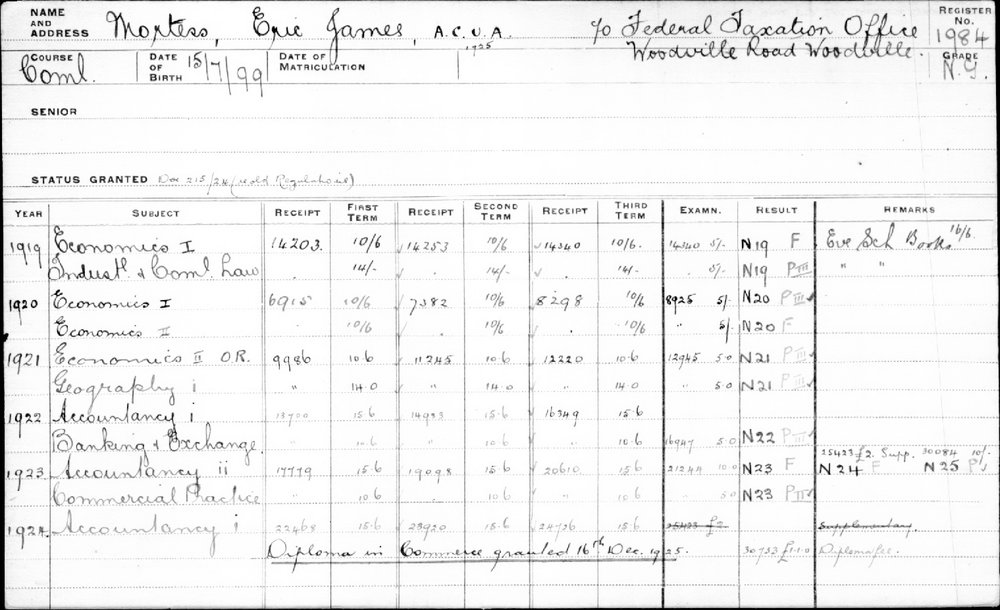 NAME AND ADDRESS Mortess, Eric James, A.C.U.A. 1925 c/o Federal Taxation Office Woodville Road Woodville. REGISTER No. 1984
COURSE Coml. DATE OF BIRTH 15/7/99 DATE OF MATRICULATION GRADE N.G.
SENIOR
STATUS GRANTED Doc 215/24 (re old Regulations)
YEAR SUBJECT RECEIPT FIRST TERM RECEIPT SECOND TERM RECEIPT THIRD TERM EXAMN. RESULT REMARKS
1919 Economics I 14203. 10/6 14253 10/6 14340 10/6. 14340 5/- N19 F Eve Sch Books 16/6
Industl. & Coml. Law . 14/- . 14/- . 14/- . 5/- N19 PIII " "
1920 Economics I 6915 10/6 7382 10/6 8298 10/6 8925 5/- N20 PIII
Economics II . 10/6 . 10/6 . 10/6 " 5/- N20 F
1921 Economics II O.R. 9986 10.6 11245 10.6 12220 10.6 12945 5.0 N21 PIII
Geography i " 14.0 " 14.0 " 14.0 " 5.0 N21 PIII
1922 Accountancy i 13700 15.6 14933 15.6 16349 15.6
Banking & Exchange. " 10.6 " 10.6 " 10.6 16947 5.0 N22 PIII
25423 £2. Supp. 30084 10/-
1923 Accountancy ii 17779 15.6 19098 15.6 20610 15.6 21244 10.0 N23 F N24 F N25 P
Commercial Practice " 10.6 " 10.6 " 10.6 " 5.0 N23 PIII
1924 Accountancy i 22468 15.6 23920 15.6 24736 15.6 25423 £2. Supplementary.
Diploma in Commerce granted 16th Dec. 1925. 30733 £1.1.0 Diploma fee.